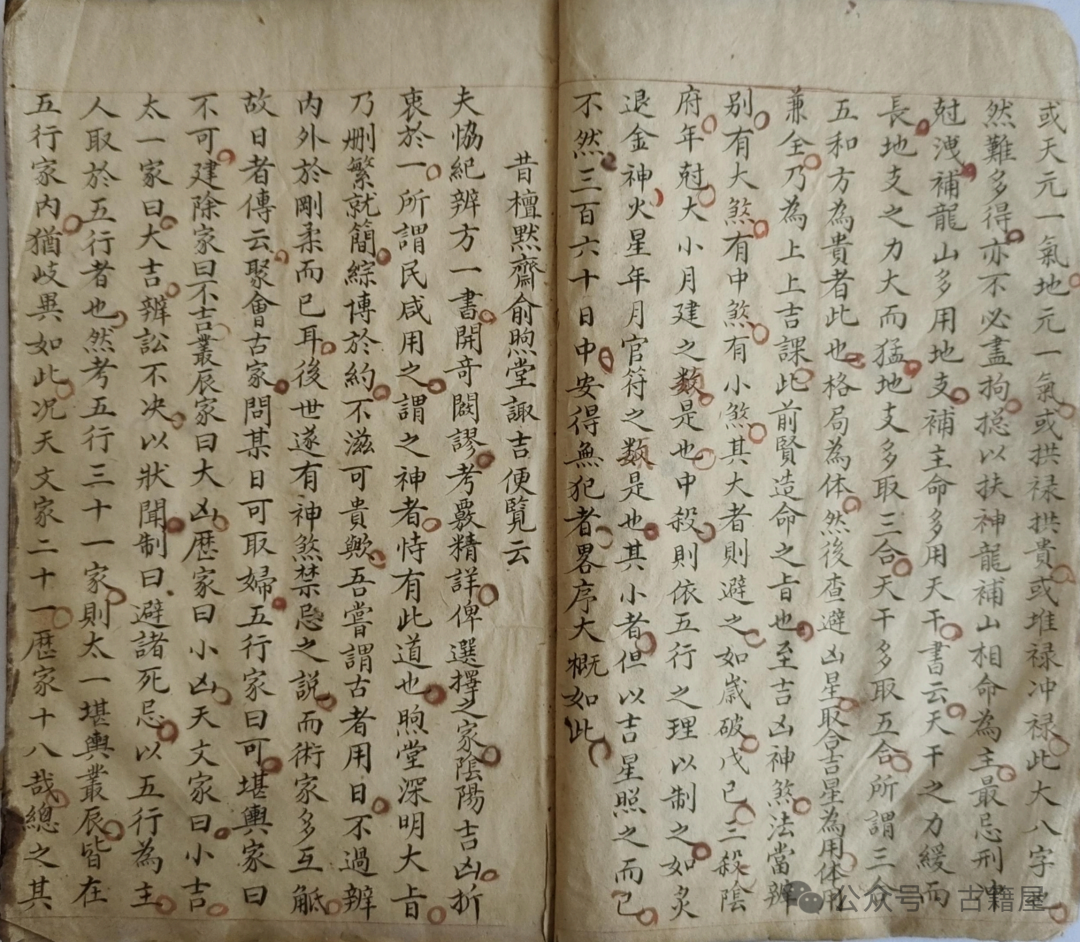 或天元一氣地元一氣或拱禄拱貴或堆禄冲禄此大八字也
然難多得亦不必盡拘揔以扶神龍補山相命為主最忌刑冲
尅洩補龍山多用地支補主命多用天干書云天干之力緩而
長地支之力大而猛地支多取三合天干多取五合所謂三合
五和方為貴者此也格局為体然後查避凶星取合吉星為用体用
兼全乃為上上吉課此前賢造命之旨也至吉凶神煞法當辨
别有大煞有中煞有小煞其大者則避之如歲破戊已三殺陰
府年尅大小月建之数是也中殺則依五行之理以制之如炙
退金神火星年月官符之数是也其小者但以吉星照之而已
不然三百六十日中安得無犯者畧序大概如此
昔檀默齋俞煦堂諏吉便覽云
夫恊紀辨方一書開竒闢謬考覈精詳俾選擇之家陰陽吉凶折
衷於一所謂民咸用之謂之神者恃有此道也煦堂深明大旨
乃删繁就簡綜博於約不滋可貴歟吾嘗謂古者用日不過辨
内外於剛柔而已耳後世遂有神煞禁忌之説而術家多互觝
故日者傳云聚會古家問某日可取婦五行家曰可堪輿家曰
不可建除家曰不吉叢辰家曰大凶歷家曰小凶天文家曰小吉
太一家曰大吉辨訟不决以狀聞制曰避諸死忌以五行為主
人取於五行者也然考五行三十一家則太一堪輿叢辰皆在
五行家内猶岐異如此况天文家二十一歷家十八哉總之其
公众号 古籍屋